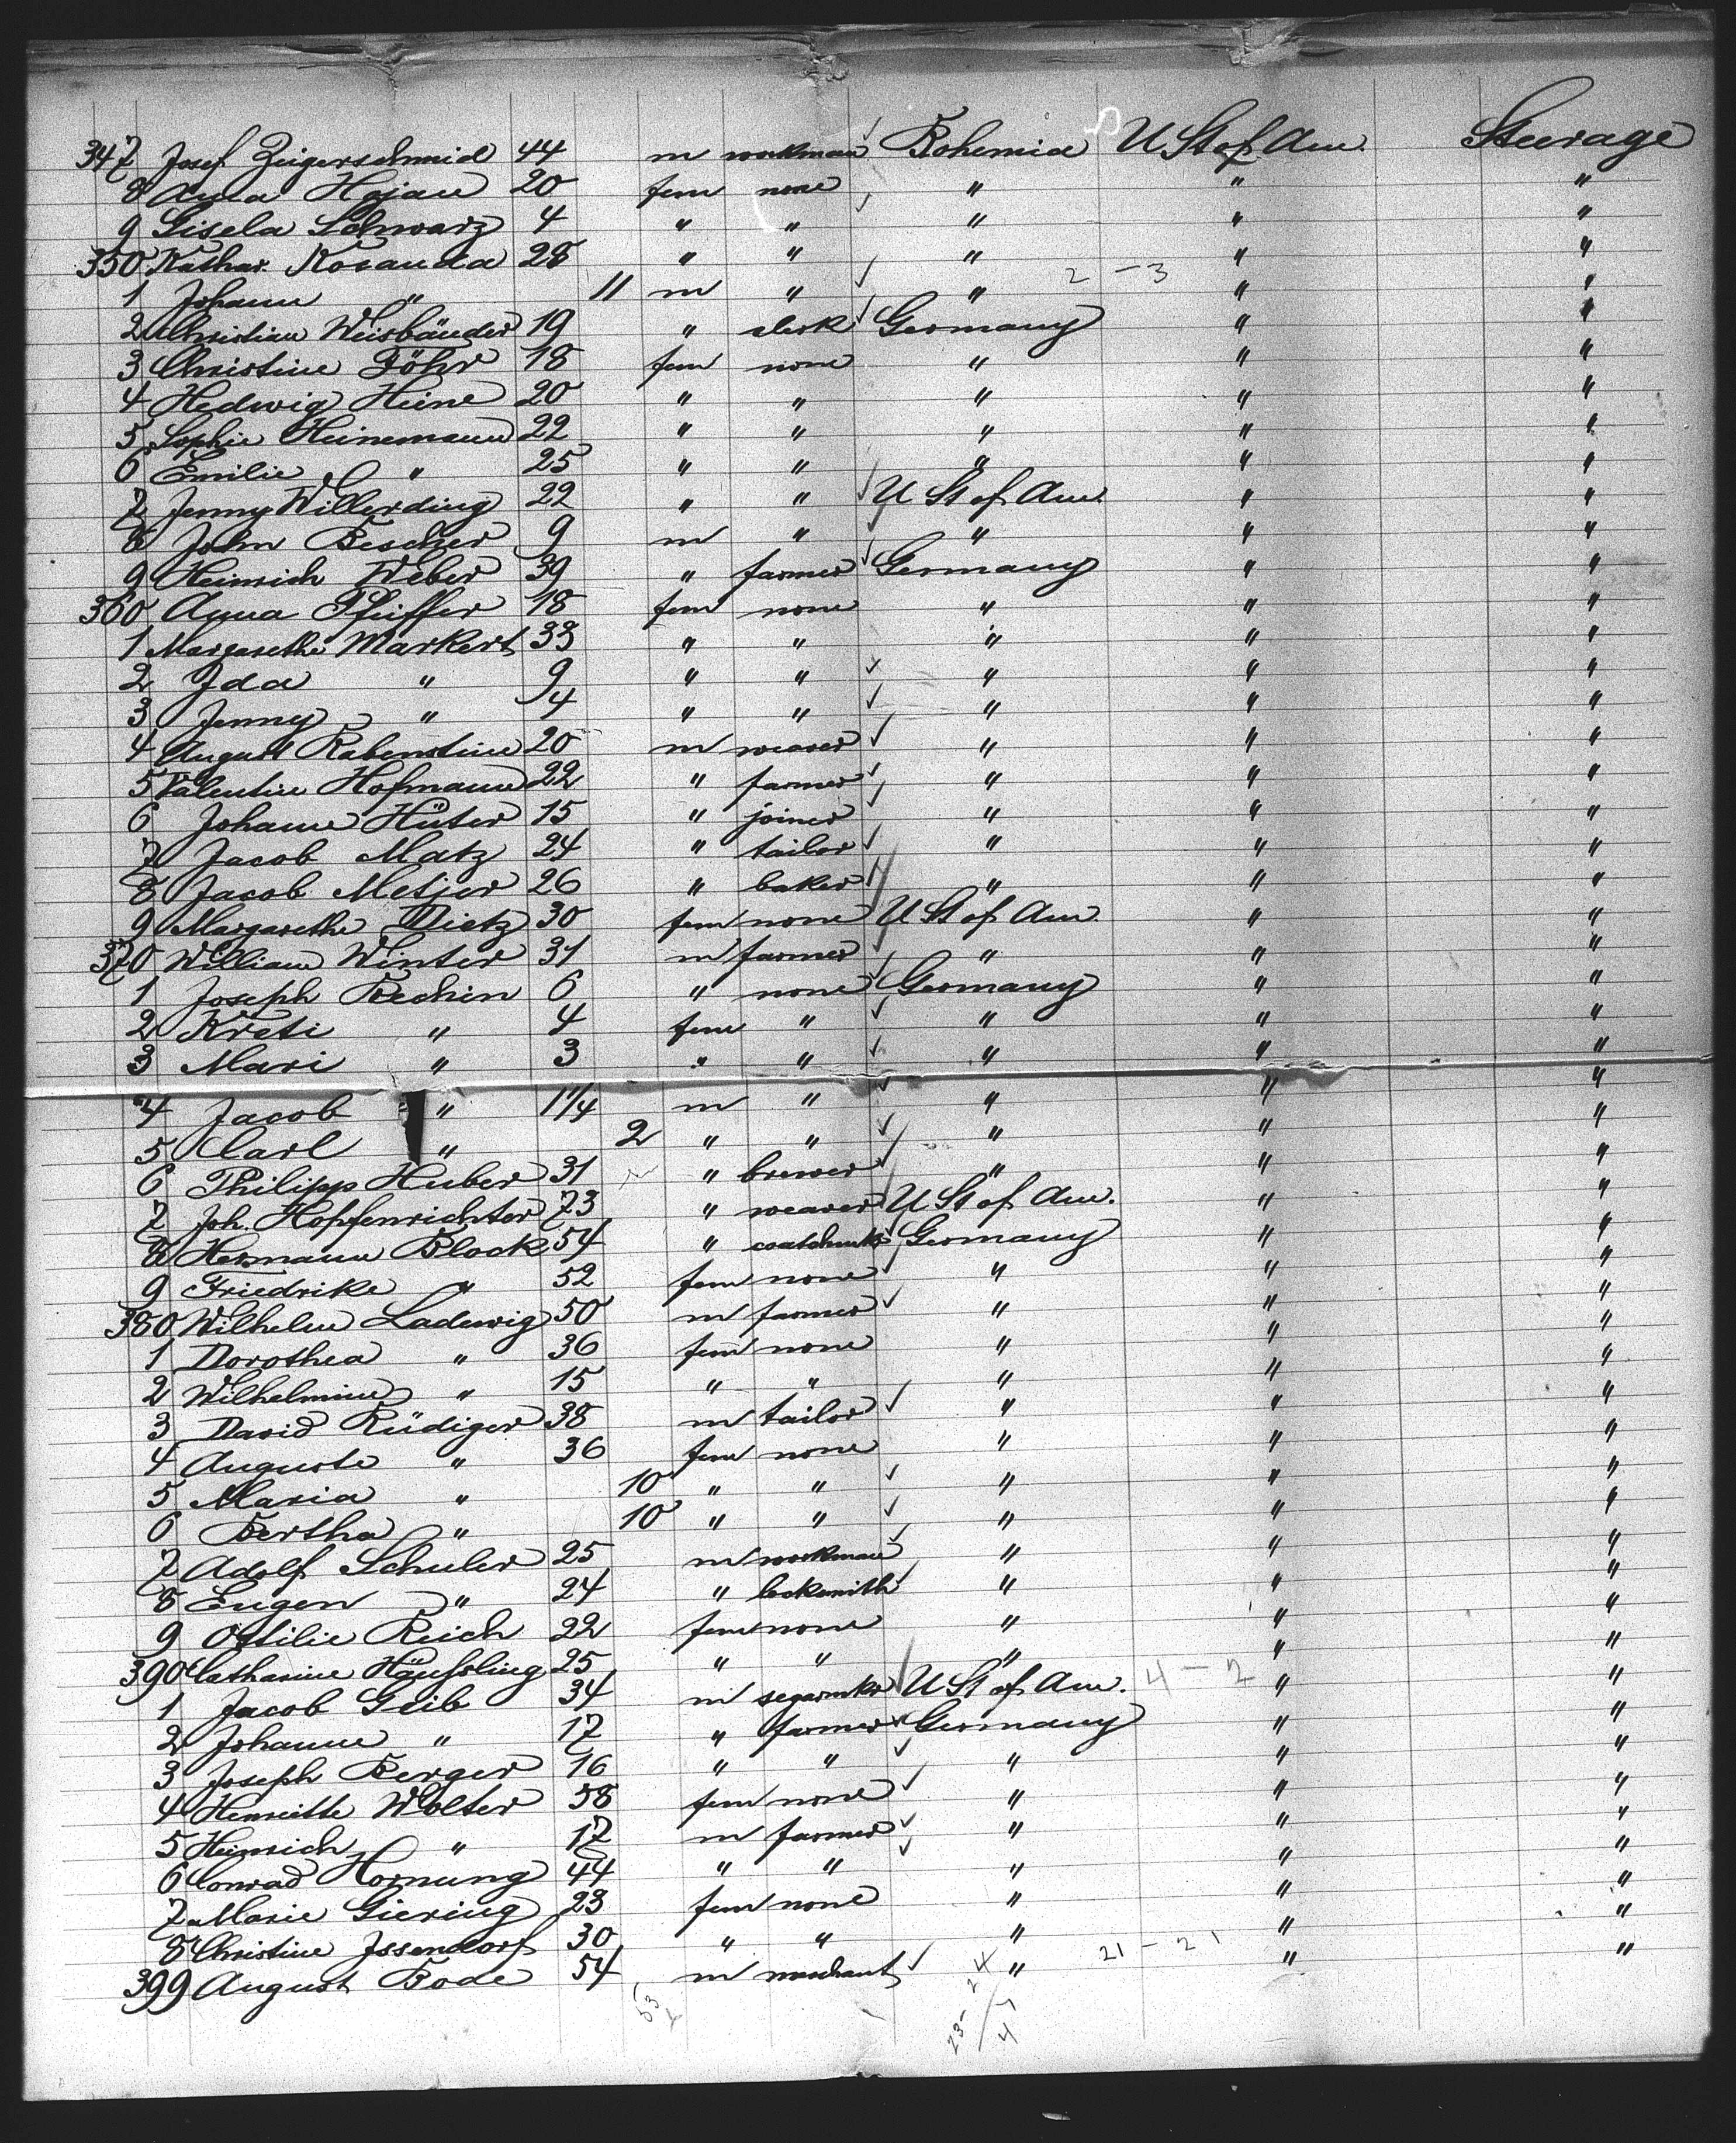 347 Josef Zeigerschmid 44 m workman Bohemia U St of Am. Steerage
8 Anna Hajan 20 fem none " " "
9 Gisela Schwarz 4 " " " " "
350 Kathar. Kosanda 28 " " " " "
1 Johann " 11 m " " 2 - 3 " "
2 Christian Weisbänder 19 " clerk Germany " "
3 Christine Föhr 18 fem none " " "
4 Hedwig Heine 20 " " " " "
5 Sophie Heinemann 22 " " " " "
6 Emilie " 25 " " " " "
7 Jenny Willerding 22 " " U St of Am. " "
8 John Bescher 9 m " " " "
9 Heinrich Weber 39 " farmer Germany " "
360 Anna Pfeiffer 18 fem none " " "
1 Margarethe Markert 33 " " " " "
2 Ida " 9 " " " " "
3 Jenny " 4 " " " " "
4 August Rabenstine 20 m weaver " " "
5 Valentin Hofmann 22 " farmer " " "
6 Johann Hüter 15 " joiner " " "
7 Jacob Matz 24 " tailor " " "
8 Jacob Metjer 26 " baker " " "
9 Margarethe Dietz 30 fem none U St of Am. " "
370 William Winter 31 m farmer " " "
1 Joseph Bechin 6 " none Germany " "
2 Kreti " 4 fem " " " "
3 Mari " 3 " " " " "
4 Jacob " 1 1/4 m " " " "
5 Carl " 2 " " " " "
6 Philipp Huber 31 " brewer " " "
7 Joh. Hopfenrichter 73 " weaver U St of Am. " "
8 Hermann Block 54 " Germany " "
9 Friedrike " 52 fem none " " "
380 Wilhelm Ladewig 50 m farmer " " "
1 Dorothea " 36 fem none " " "
2 Wilhelmine " 15 " " " " "
3 David Rüdiger 38 m tailor " " "
4 Auguste " 36 fem none " " "
5 Maria " 10 " " " " "
6 Bertha " 10 " " " " "
7 Adolf Schuler 25 m workman " " "
8 Eugen " 24 " locksmith " " "
9 Ottilie Reich 22 fem none " " "
390 Catharine Häußling 25 " " " " "
1 Jacob Geib 34 m segarmkr U St of Am. 4 - 2 " "
2 Johann " 17 " farmer Germany " "
3 Joseph Berger 16 " " " " "
4 Henriette Wolter 58 fem none " " "
5 Heinrich " 17 m farmer " " "
6 Conrad Hornung 44 " " " " "
7 Marie Giering 23 fem none " " "
8 Christine Issendorf 30 " " " " "
399 August Bode 54 m merchant " 21 - 21 " "
23 - 24
47